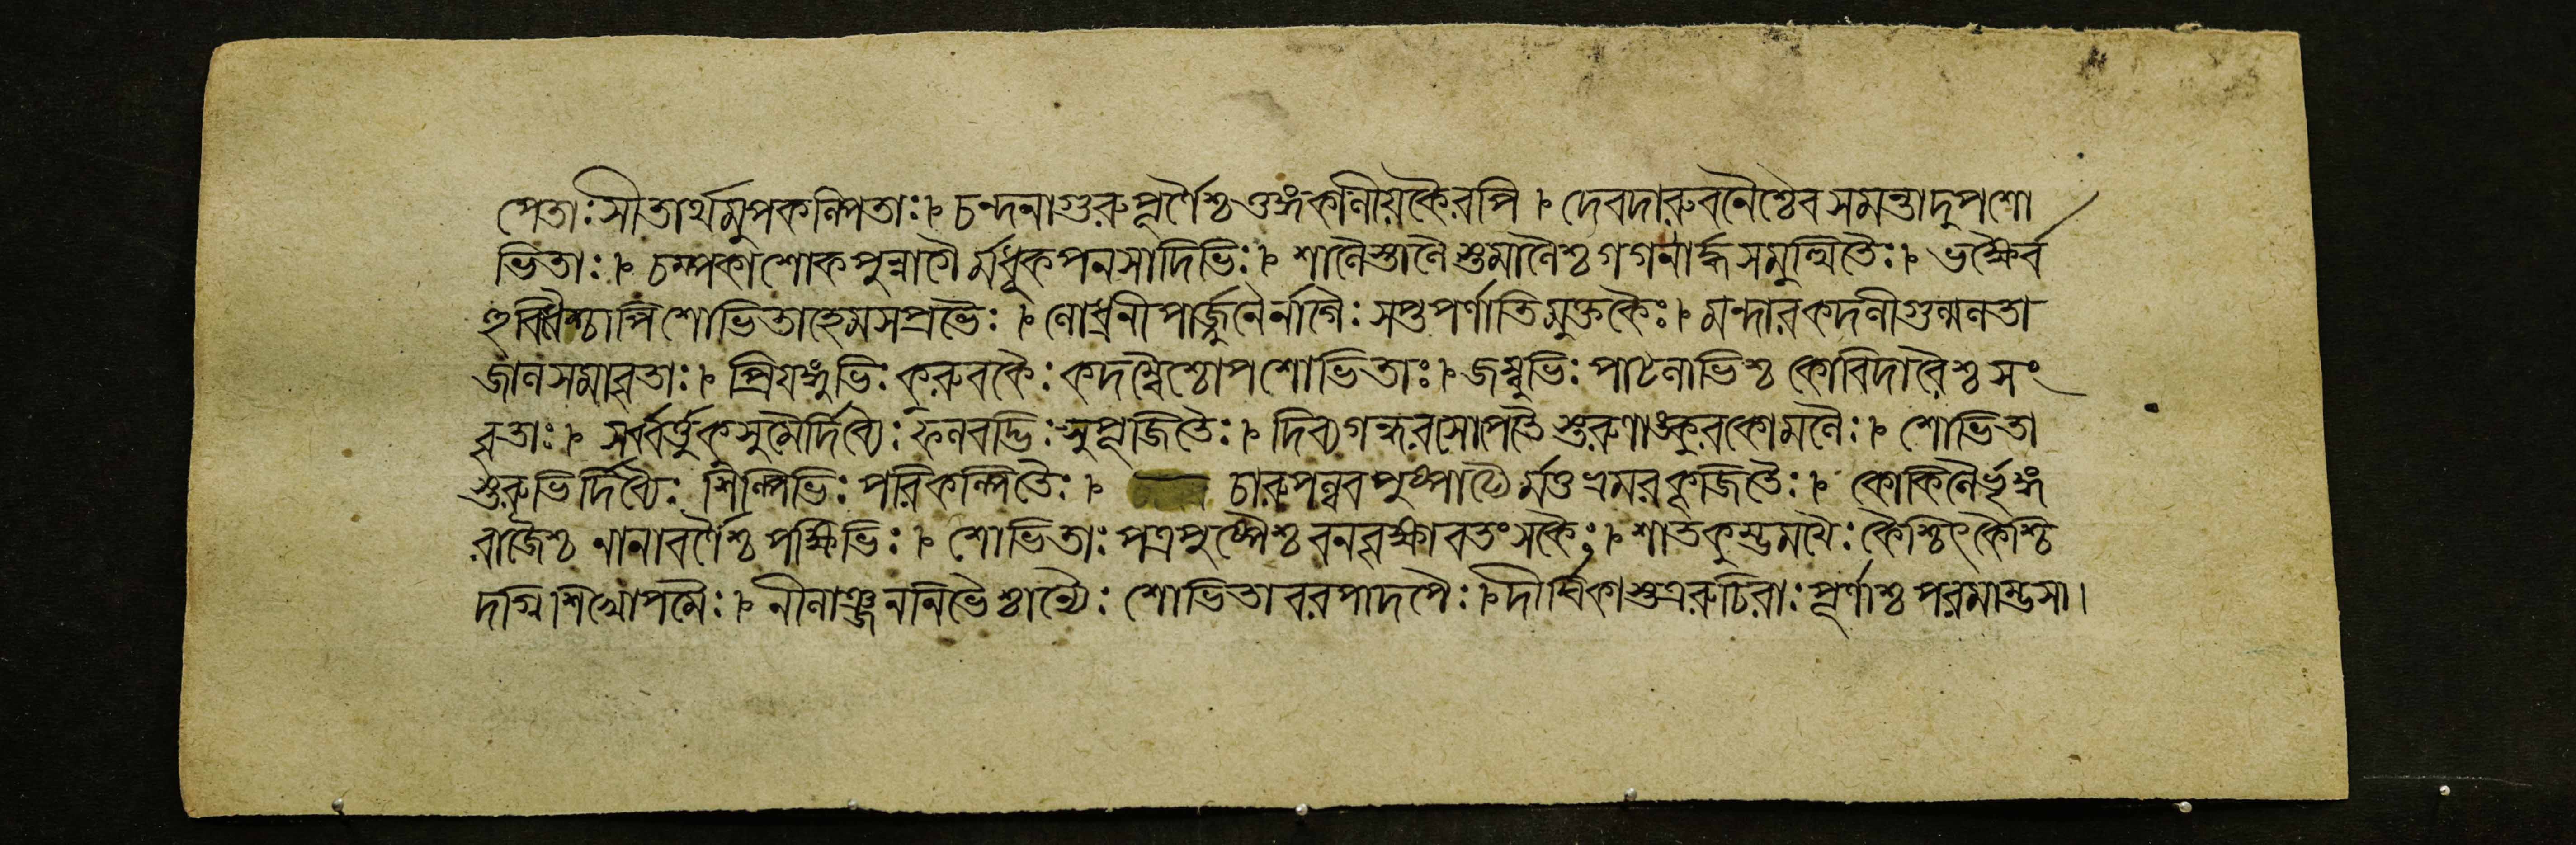 পেতাঃ সীতার্থমুপকল্পিতাঃ । চন্দনাগুরুপূর্ণৈশ্চ তুঙ্গকর্ণীয়কৈরপি । দেবদারুবনৈশ্চৈব সমন্তাদুপশো
ভিতাঃ । চম্পকাশোকপুন্নাগৈ র্মধূকপনসাদিভিঃ । শালৈস্তালৈ স্তমালৈশ্চ গগনার্দ্ধসমুত্থিতৈঃ । ভক্ষ্যৈর্ব
হুবিধৈশ্চাপি শোভিতা হেমসপ্রভৈঃ । লোধ্রনীপার্জ্জুনৈর্নাগৈঃ সপ্তপর্ণাতিমুক্তকৈঃ । মন্দারকদলীগুল্মলতা
জালসমাবৃতাঃ । প্রিয়ঙ্গুভিঃ কুরুবকৈঃ কদম্বৈশ্চোপশোভিতাঃ । জম্বুভিঃ পাটলাভিশ্চ কোবিদারৈশ্চ সং
বৃতাঃ । সর্ব্বর্ত্তুকুসুমৈর্দিব্যৈঃ ফলবদ্ভিঃ সুপূজিতৈঃ । দিব্যগন্ধরসোপেতৈ স্তরুণাঙ্কুরকোমলৈঃ । শোভিতা
স্তরুভির্দিব্যৈঃ শিল্পিভিঃ পরিকল্পিতৈঃ । চারুপল্লবপুষ্পাঢ্যৈ র্মত্তভ্রমরকূজিতৈঃ । কোকিলৈর্ভৃঙ্গ
রাজৈশ্চ নানাবর্ণৈশ্চ পক্ষিভিঃ । শোভিতাঃ পত্রপুষ্পৈশ্চ বনবৃক্ষাবতংসকৈঃ । শাতকুম্ভময়ৈঃ কৈশ্চিৎ কৈশ্চি
দগ্নিশিখোপমৈঃ । নীলাঞ্জননিভৈশ্চান্যৈঃ শোভিতা বরপাদপৈঃ । দীর্ঘিকাস্তত্র রুচিরাঃ পূর্ণাশ্চ পরমাম্ভসা ।